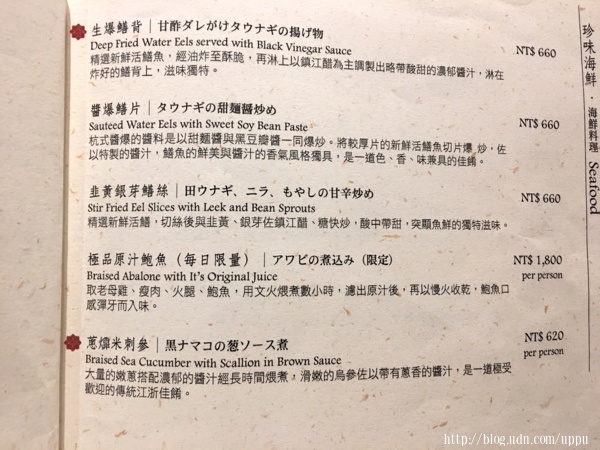 生爆鱔背｜甘酢ダレがけタウナギの揚げ物
Deep Fried Water Eels served with Black Vinegar Sauce
NT$ 660
精選新鮮活鱔魚，經油炸至酥脆，再淋上以鎮江醋為主調製出略帶酸甜的濃郁醬汁，淋在
炸好的鱔背上，滋味獨特。
醬爆鱔片｜タウナギの甜麺醤炒め
Sauteed Water Eels with Sweet Soy Bean Paste
NT$ 660
杭式醬爆的醬料是以甜麵醬與黑豆瓣醬一同爆炒。將較厚片的新鮮活鱔魚切片爆 炒，佐
以特製的醬汁，鱔魚的鮮美與醬汁的香氣風格獨具，是一道色、香、味兼具的佳餚。
韭黃銀芽鱔絲｜田ウナギ、ニラ、もやしの甘辛炒め
Stir Fried Eel Slices with Leek and Bean Sprouts
NT$ 660
精選新鮮活鱔，切絲後與韭黃、銀芽佐鎮江醋、糖快炒，酸中帶甜，突顯魚鮮的獨特滋味。
極品原汁鮑魚（每日限量）｜アワビの煮込み（限定）
Braised Abalone with It's Original Juice
NT$ 1,800
per person
取老母雞、瘦肉、火腿、鮑魚，用文火煨煮數小時，濾出原汁後，再以慢火收乾，鮑魚口
感彈牙而入味。
蔥㸆米刺參｜黒ナマコの葱ソース煮
Braised Sea Cucumber with Scallion in Brown Sauce
NT$ 620
per person
大量的嫩蔥搭配濃郁的醬汁經長時間煨煮，滑嫩的烏參佐以帶有蔥香的醬汁，是一道極受
歡迎的傳統江浙佳餚。
珍味海鮮・海鮮料理 Seafood
http://blog.udn.com/uppu